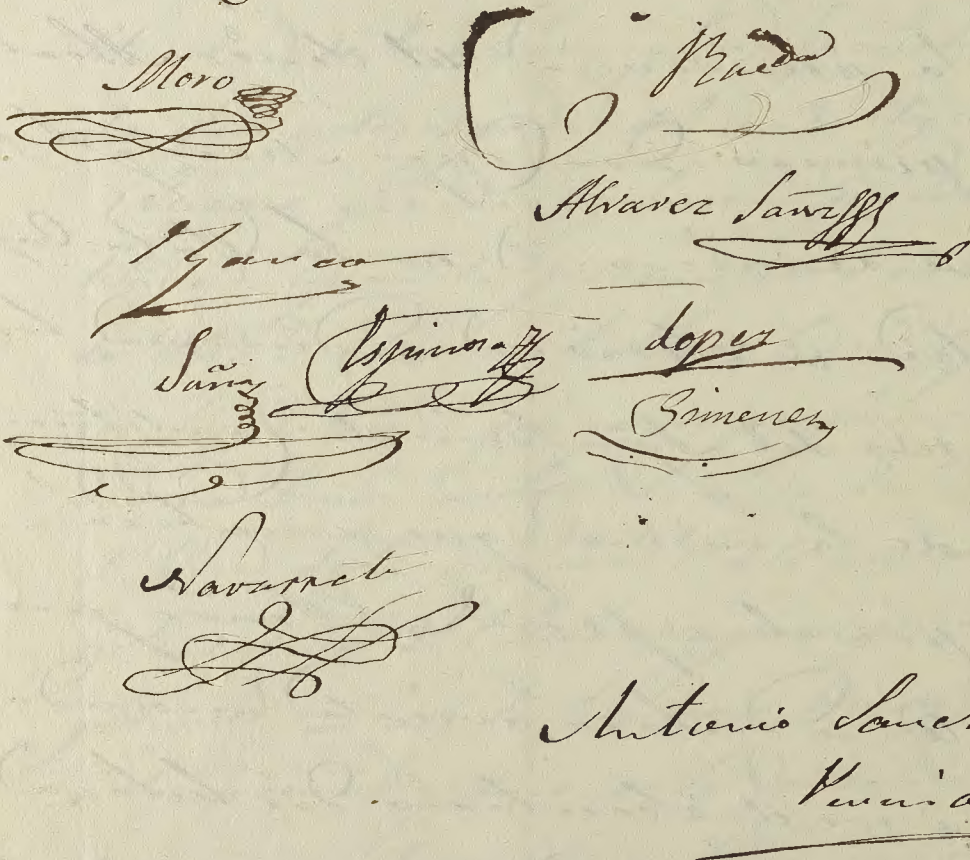 Moro
Rueda
Alvarez Sanz
Saña
Espinosa
Lopez
Gimenez
Navarrete
Antonio Sanc